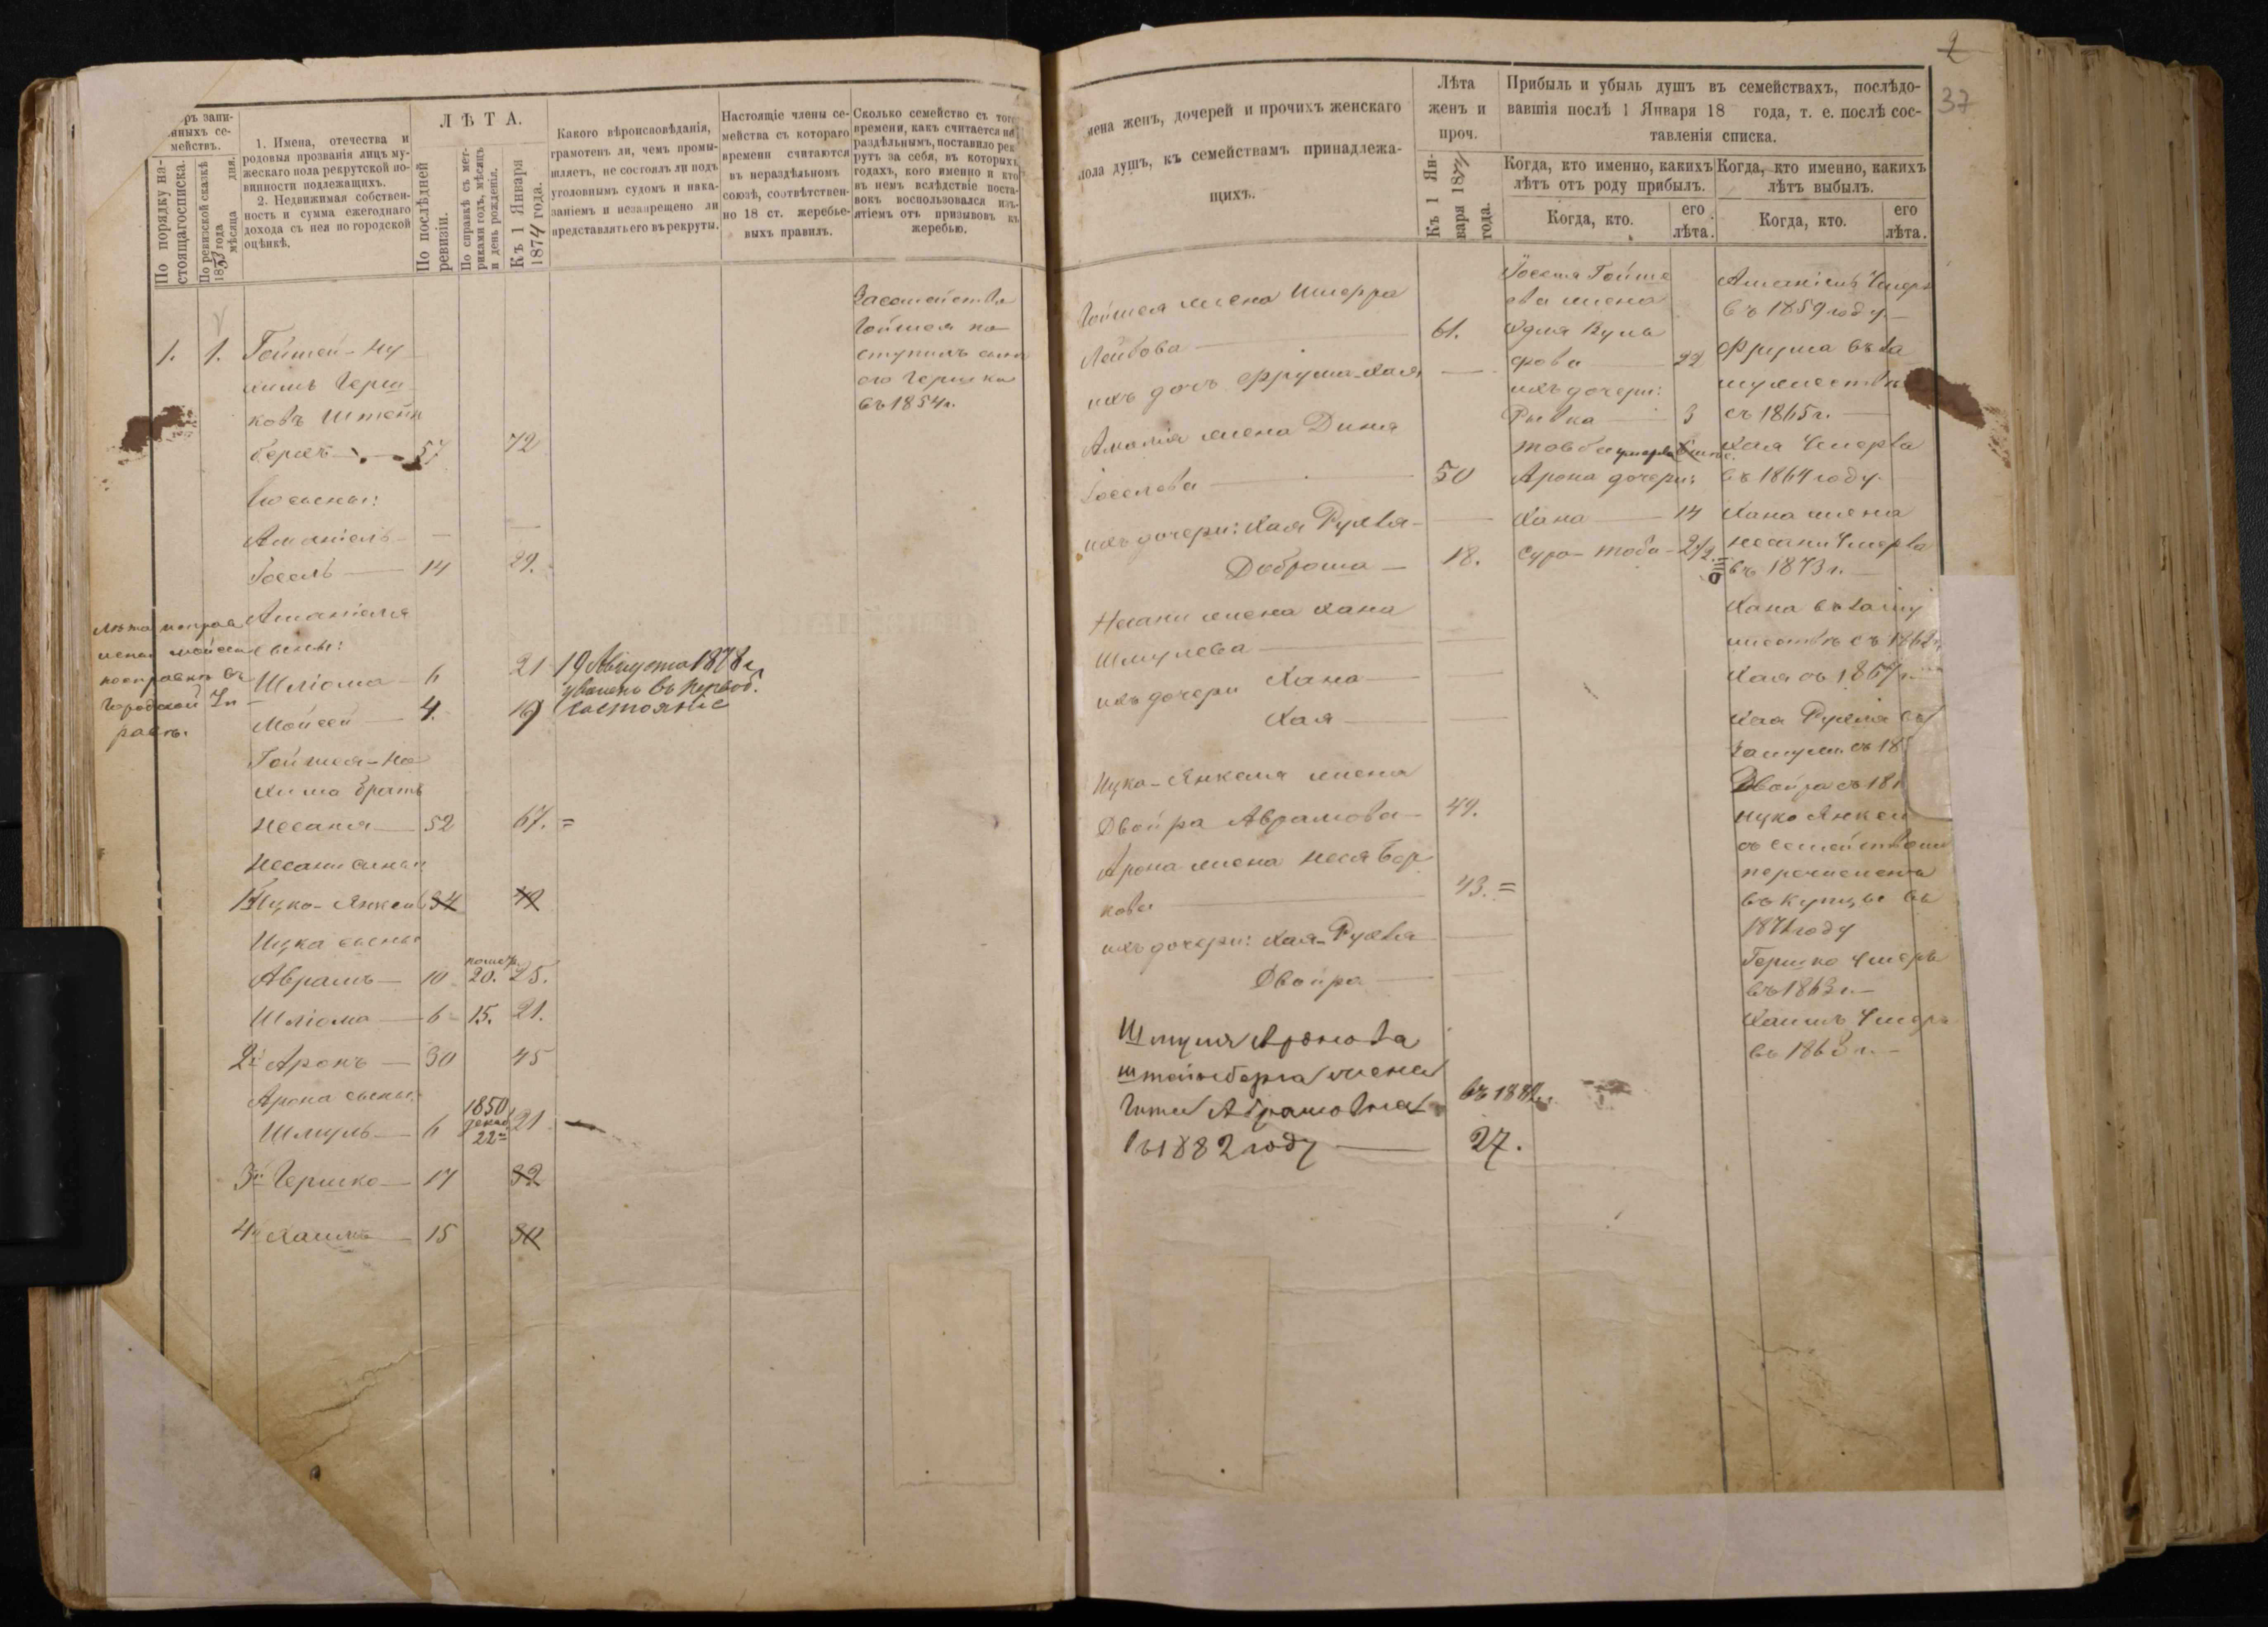 2
37
мѣръ запи-
анныхъ се-
мействъ.
По порядку на-
стоящаго списка.
По ревизской сказкѣ
18 года
мѣсяца дня.
1. Имена, отечества и
родовыя прозванія лицъ му-
жескаго пола рекрутской по-
винности подлежащихъ.
2. Недвижимая собствен-
ность и сумма ежегоднаго
дохода съ нея по городской
оцѣнкѣ.
ЛѢТА.
По послѣдней
ревизіи.
По справкѣ съ мет-
риками годъ, мѣсяцъ
и день рожденія.
Къ 1 Января
1874 года.
Какого вѣроисповѣданія,
грамотенъ ли, чемъ промы-
шляетъ, не состоялъ ли подъ
уголовнымъ судомъ и нака-
заніемъ и незапрещено ли
представлять его въ рекруты.
Настоящіе члены се-
мейства съ котораго
времени считаются
въ нераздѣльномъ
союзѣ, соотвѣтствен-
но 18 ст. жеребье-
выхъ правилъ.
Сколько семейство съ того
времени, какъ считается не
раздѣльнымъ, поставило рек
рутъ за себя, въ которыхъ
годахъ, кого именно и кто
въ немъ вслѣдствіе поста-
вокъ воспользовался изъ-
ятіемъ отъ призывовъ къ
жеребью.
1. 1. Гойшей-Ну
химъ Герш
ковъ Штейн
бергъ 57 72
Его сыны:
Аманіель —
Іосель 14 29.
Аманіеля
сыны:
Шліома 6 21 19 Августа 1878 г.
Мойсей 4. 19 состояніе
Гойшея-Но
хима братъ
Несаня 52 67. =
Несани сыны
1й Ицко-Янкель 34 49
Ицка сыны
Абрамъ 10 20. 25.
Шліома 6 15. 21.
2й Аронъ 30 45
Арона сыны:
Шмуль 6 1850 декаб. 22 21
3й Гершко 17 32
4й Хаимъ 15 30
За семейство
Гойшея по
ступилъ сынъ
его Гершко
въ 1854 г.
мена женъ, дочерей и прочихъ женскаго
пола душъ, къ семействамъ принадлежа-
щихъ.
Лѣта
женъ и
проч.
Къ 1 Ян-
варя 1874
года.
Прибыль и убыль душъ въ семействахъ, послѣдо-
вавшія послѣ 1 Января 18 года, т. е. послѣ сос-
тавленія списка.
Когда, кто именно, какихъ
лѣтъ отъ роду прибылъ.
Когда, кто.
его
лѣта.
Когда, кто именно, какихъ
лѣтъ выбылъ.
Когда, кто.
его
лѣта.
Гойшея жена Шперра
Лейбова 61.
ихъ дочь Фрума-Хая —
Аманія жена Диня
Іоселева 50
ихъ дочери: Хая Рухля —
Доброша 18.
Несани жена Хана
Шмулева —
ихъ дочери Хана —
Хая —
Ицка-Янкеля жена
Двойра Абрамова 49.
Арона жена Неся Бер
кова 43. =
ихъ дочери: Хая-Рухля —
Двойра —
Шмуля Аронова
Штейнберга жена
Гитя Абрамовна въ 1882 г.
въ 1882 году 27.
Іоселя Гойше
ева жена
Удля Вуль
фова 22
ихъ дочери:
Рывка 3
Товба умерла
Арона дочери:
Хана 14
Сура-Тоба 2 1/2
Аманіель Умеръ
въ 1859 году
Фрума въ за
мужествѣ
съ 1865 г.
Хая Умерла
въ 1864 году.
Хана жена
Несани Умерла
въ 1873 г.
Хана въ заму
жествѣ съ 1862 г.
Хая съ 1867 г.
Хая Рухля въ
замуж. съ 18
Двойра съ 18
Ицко Янкель
съ семействомъ
перечисленъ
въ купцы въ
1871 году
Гершко Умеръ
въ 1863 г.
Хаимъ Умеръ
въ 1863 г.